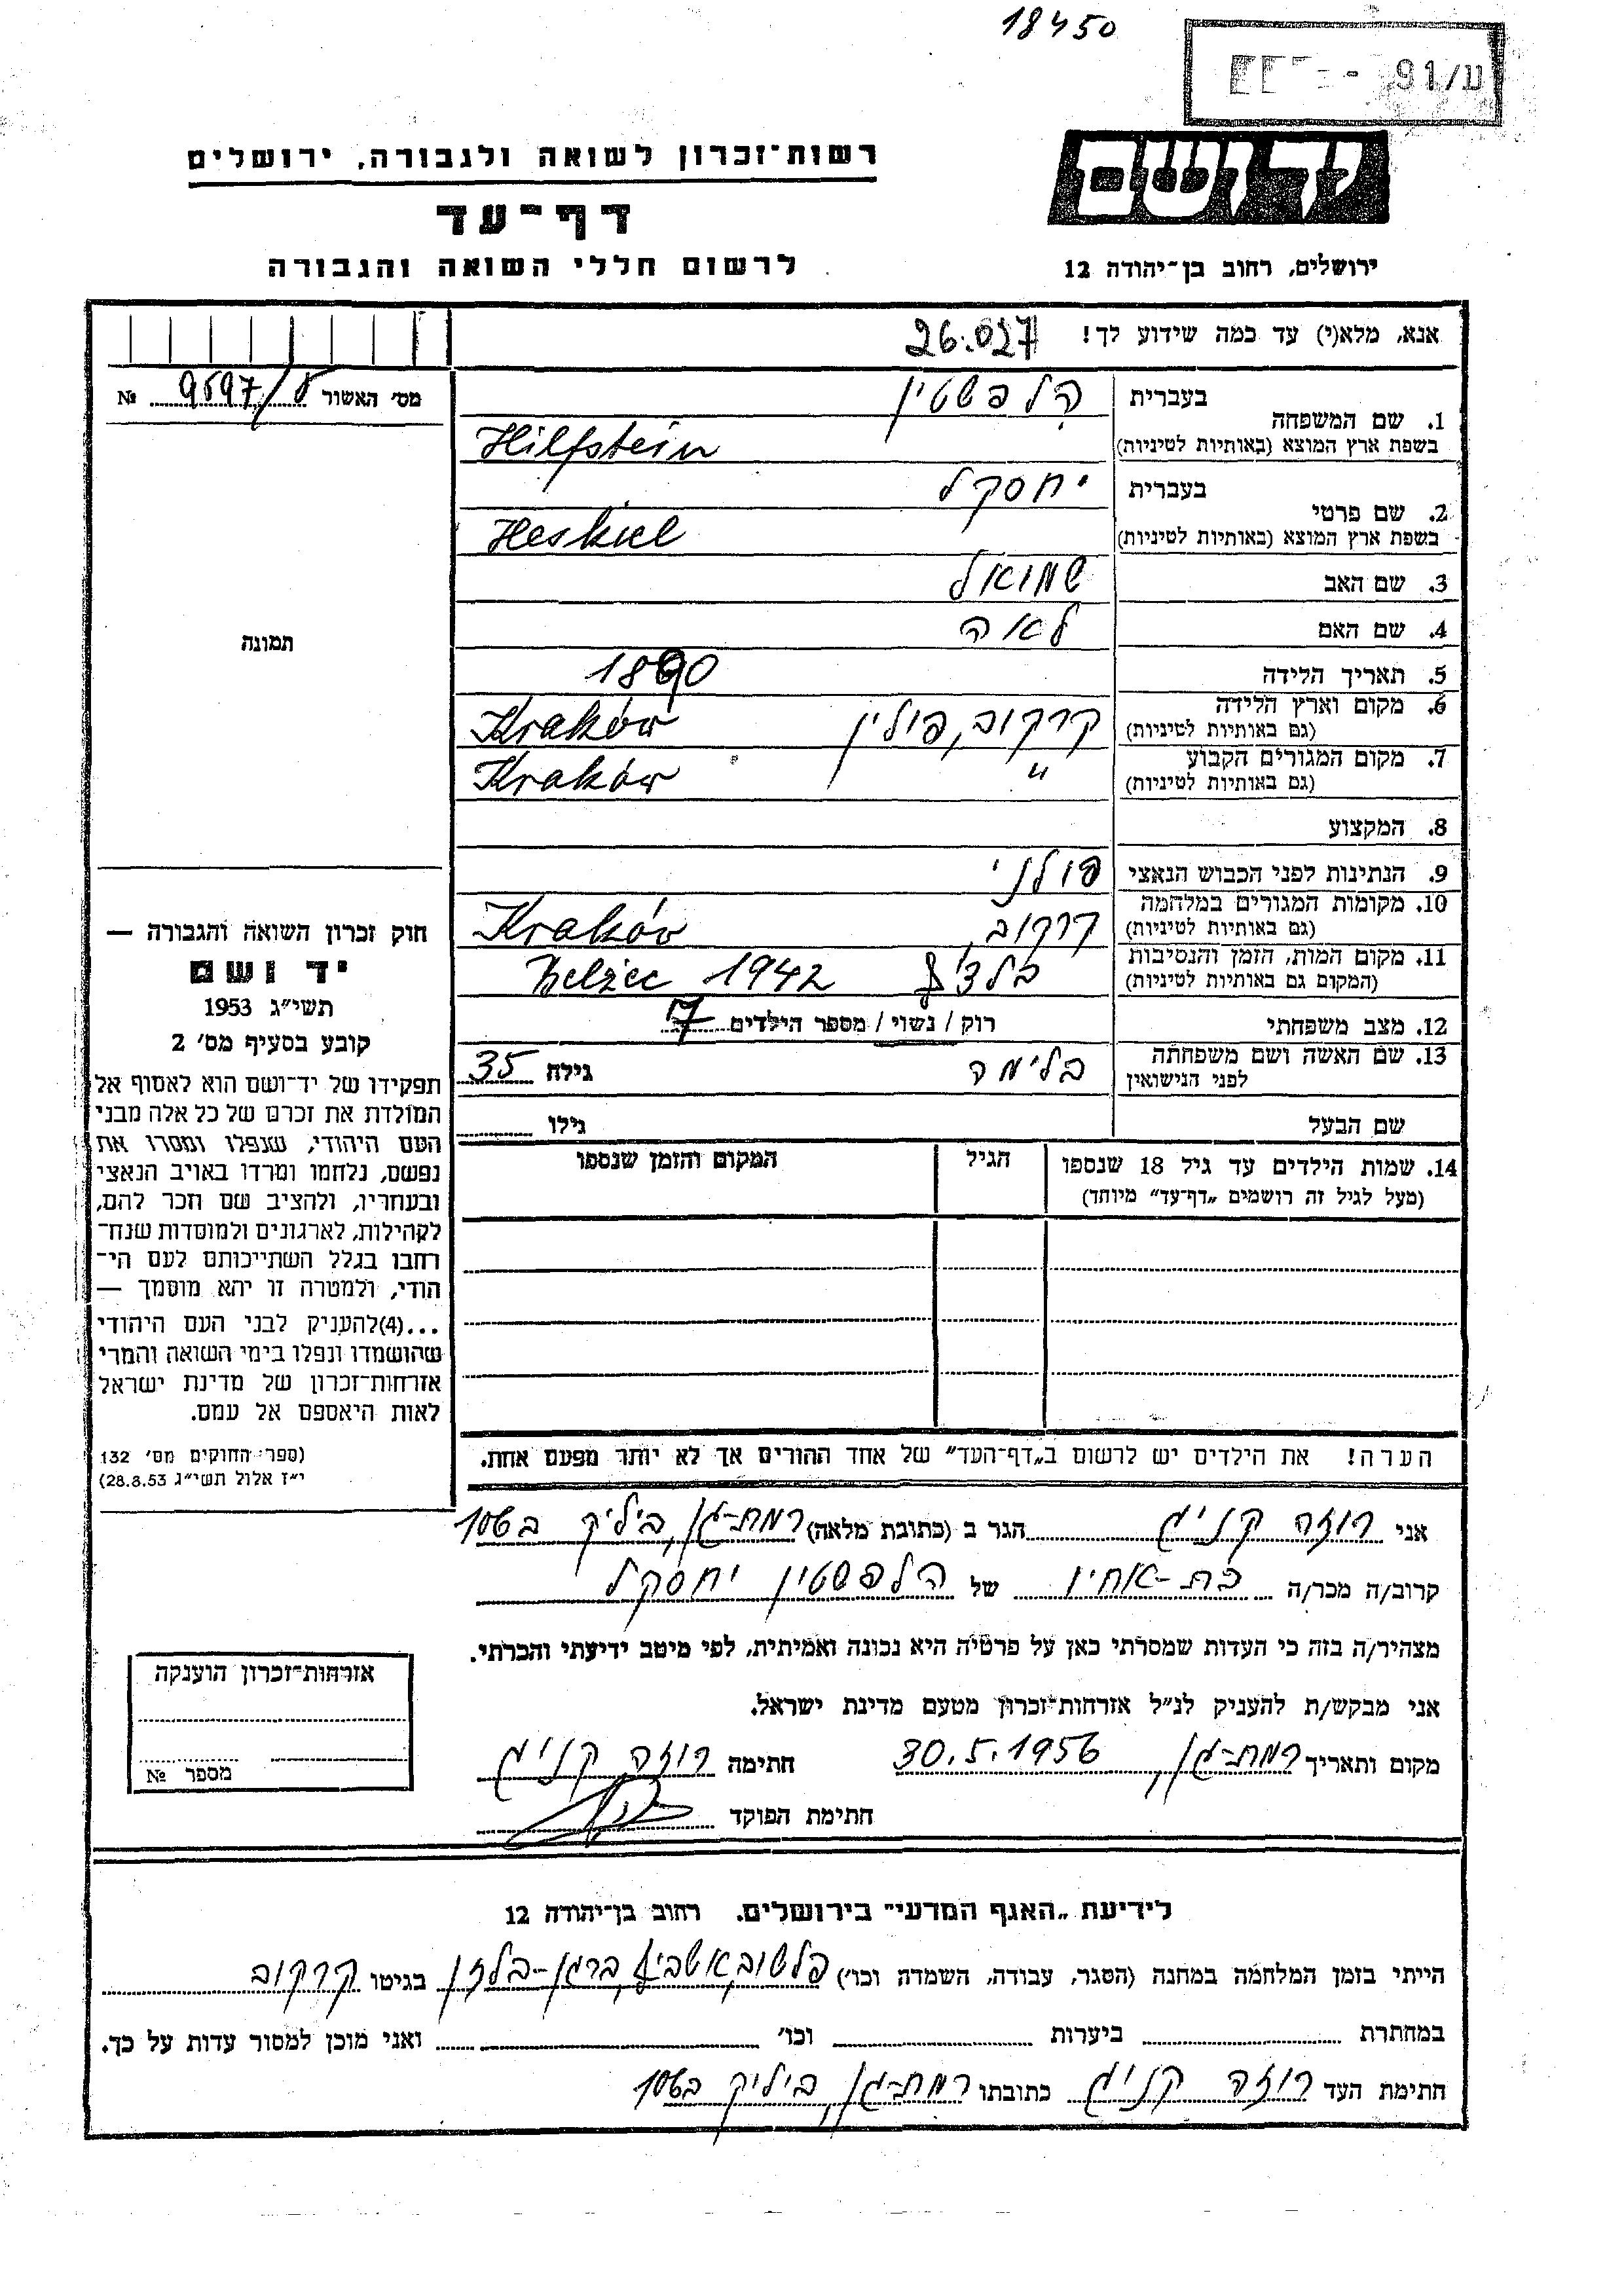 18450
ע/91 -
יד ושם
רשות־זכרון לשואה ולגבורה, ירושלים
דף־עד
ירושלים, רחוב בן־יהודה 12
לרשום חללי השואה והגבורה
אנא, מלא(י) עד כמה שידוע לך! 26.027
מס׳ האשור 9597/ №
בעברית הלפשטין
1. שם המשפחה
בשפת ארץ המוצא (באותיות לטיניות) Hilfstein
בעברית יחסקל
2. שם פרטי
בשפת ארץ המוצא (באותיות לטיניות) Heskiel
3. שם האב שמואל
4. שם האם לאה
תמונה
5. תאריך הלידה 1890
6. מקום וארץ הלידה קרקוב, פולין Kraków
(גם באותיות לטיניות)
7. מקום המגורים הקבוע " Kraków
(גם באותיות לטיניות)
8. המקצוע
9. הנתינות לפני הכבוש הנאצי פולני
10. מקומות המגורים במלחמה קרקוב, Kraków
(גם באותיות לטיניות)
11. מקום המות, הזמן והנסיבות Belżec 1942
(המקום גם באותיות לטיניות)
12. מצב משפחתי רוק / נשוי / מספר הילדים 7
13. שם האשה ושם משפחתה בלימה גילה 35
לפני הנישואין
שם הבעל גילו
14. שמות הילדים עד גיל 18 שנספו הגיל המקום והזמן שנספו
(מעל לגיל זה רושמים „דף־עד״ מיוחד)
חוק זכרון השואה והגבורה —
יד ושם
תשי״ג 1953
קובע בסעיף מס׳ 2
תפקידו של יד־ושם הוא לאסוף אל
המולדת את זכרם של כל אלה מבני
העם היהודי, שנפלו ומסרו את
נפשם, נלחמו ומרדו באויב הנאצי
ובעוזריו, ולהציב שם וזכר להם,
לקהילות, לארגונים ולמוסדות שנח־
רבו בגלל השתייכותם לעם הי־
הודי, ולמטרה זו יהא מוסמך —
...(4)להעניק לבני העם היהודי
שהושמדו ונפלו בימי השואה והמרי
אזרחות־זכרון של מדינת ישראל
לאות היאספם אל עמם.
(ספר החוקים מס׳ 132
י״ז אלול תשי״ג 28.8.53)
הערה! את הילדים יש לרשום ב„דף־העד״ של אחד ההורים אך לא יותר מפעם אחת.
אני רוזה קניג הגר ב (כתובת מלאה) רמת-גן, ביליק
קרוב/ה מכר/ה בת-אחיו של הלפשטין יחסקל
מצהיר/ה בזה כי העדות שמסרתי כאן על פרטיה היא נכונה ואמיתית, לפי מיטב ידיעתי והכרתי.
אני מבקש/ת להעניק לנ״ל אזרחות־זכרון מטעם מדינת ישראל.
מקום ותאריך רמת-גן, 30.5.1956 חתימה רוזה קניג
חתימת הפוקד
אזרחות־זכרון הוענקה
מספר №
לידיעת „האגף המדעי״ בירושלים, רחוב בן־יהודה 12
הייתי בזמן המלחמה במחנה (הסגר, עבודה, השמדה וכו׳) פלשוב, ברגן-בלזן בגיטו קרקוב
במחתרת ביערות וכו׳ ואני מוכן למסור עדות על כך.
חתימת העד רוזה קניג כתובתו רמת-גן, ביליק